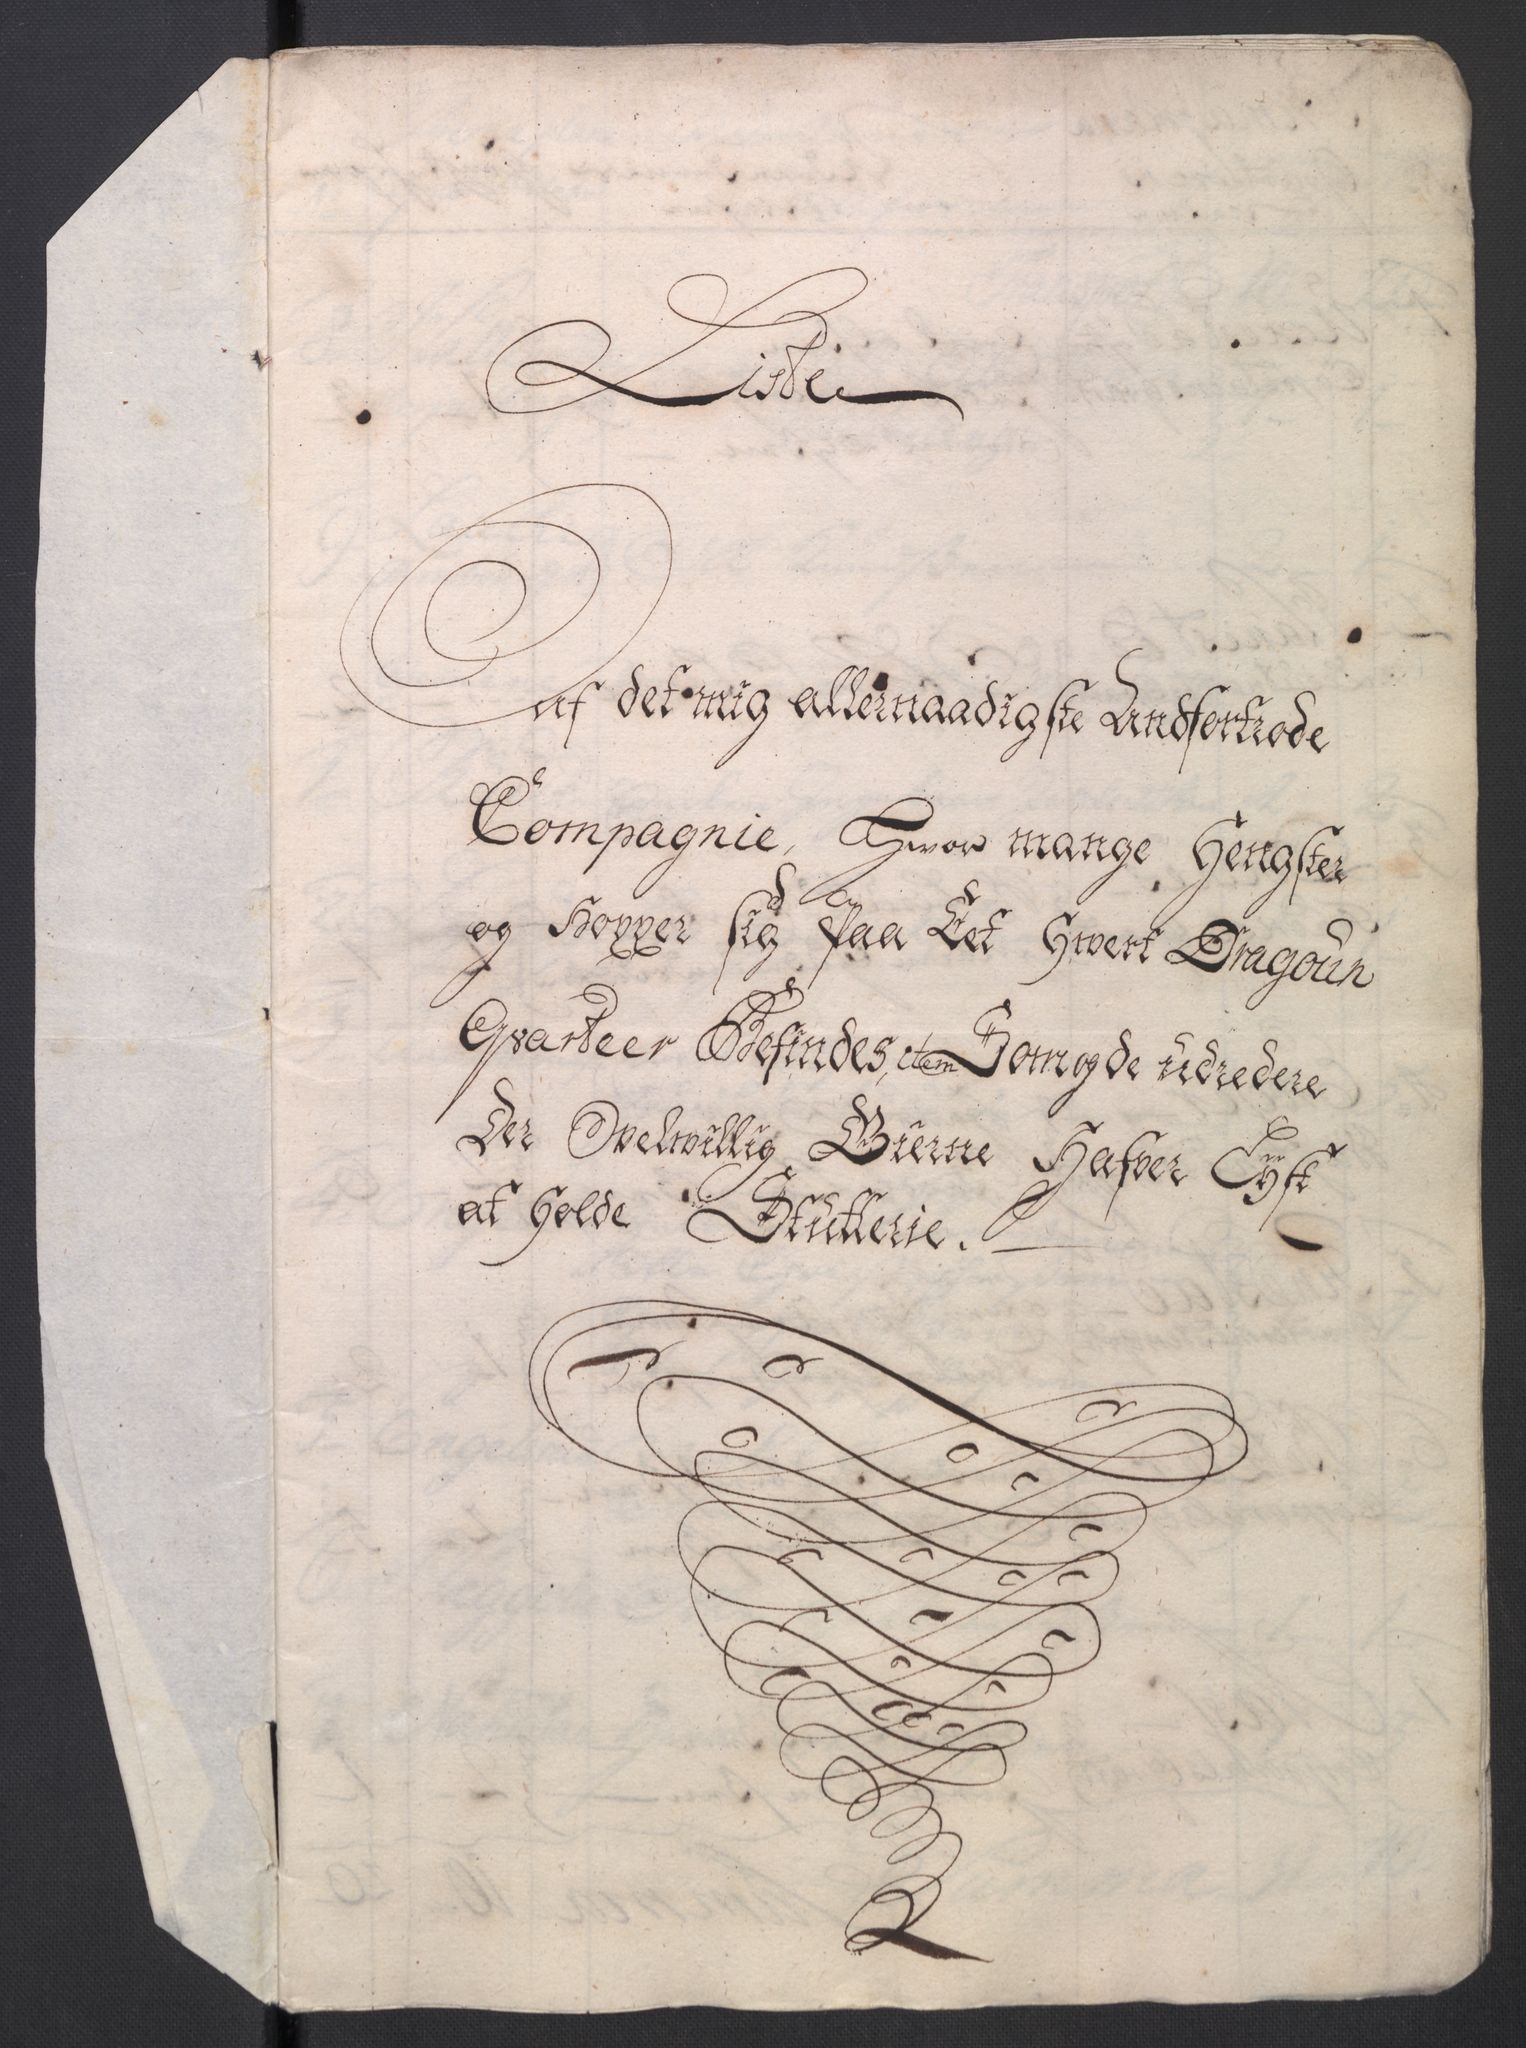 Liste
af det mig allernaadigste Andfortrode
Compagnie, Hvor mange Hengster
og Hopper sig paa Eet Hvert Dragoun
Qvarteer Befindes, item Som og de üdredere
Der Velvillig Gierne Hafver Lyst
at Holde Stutterie.